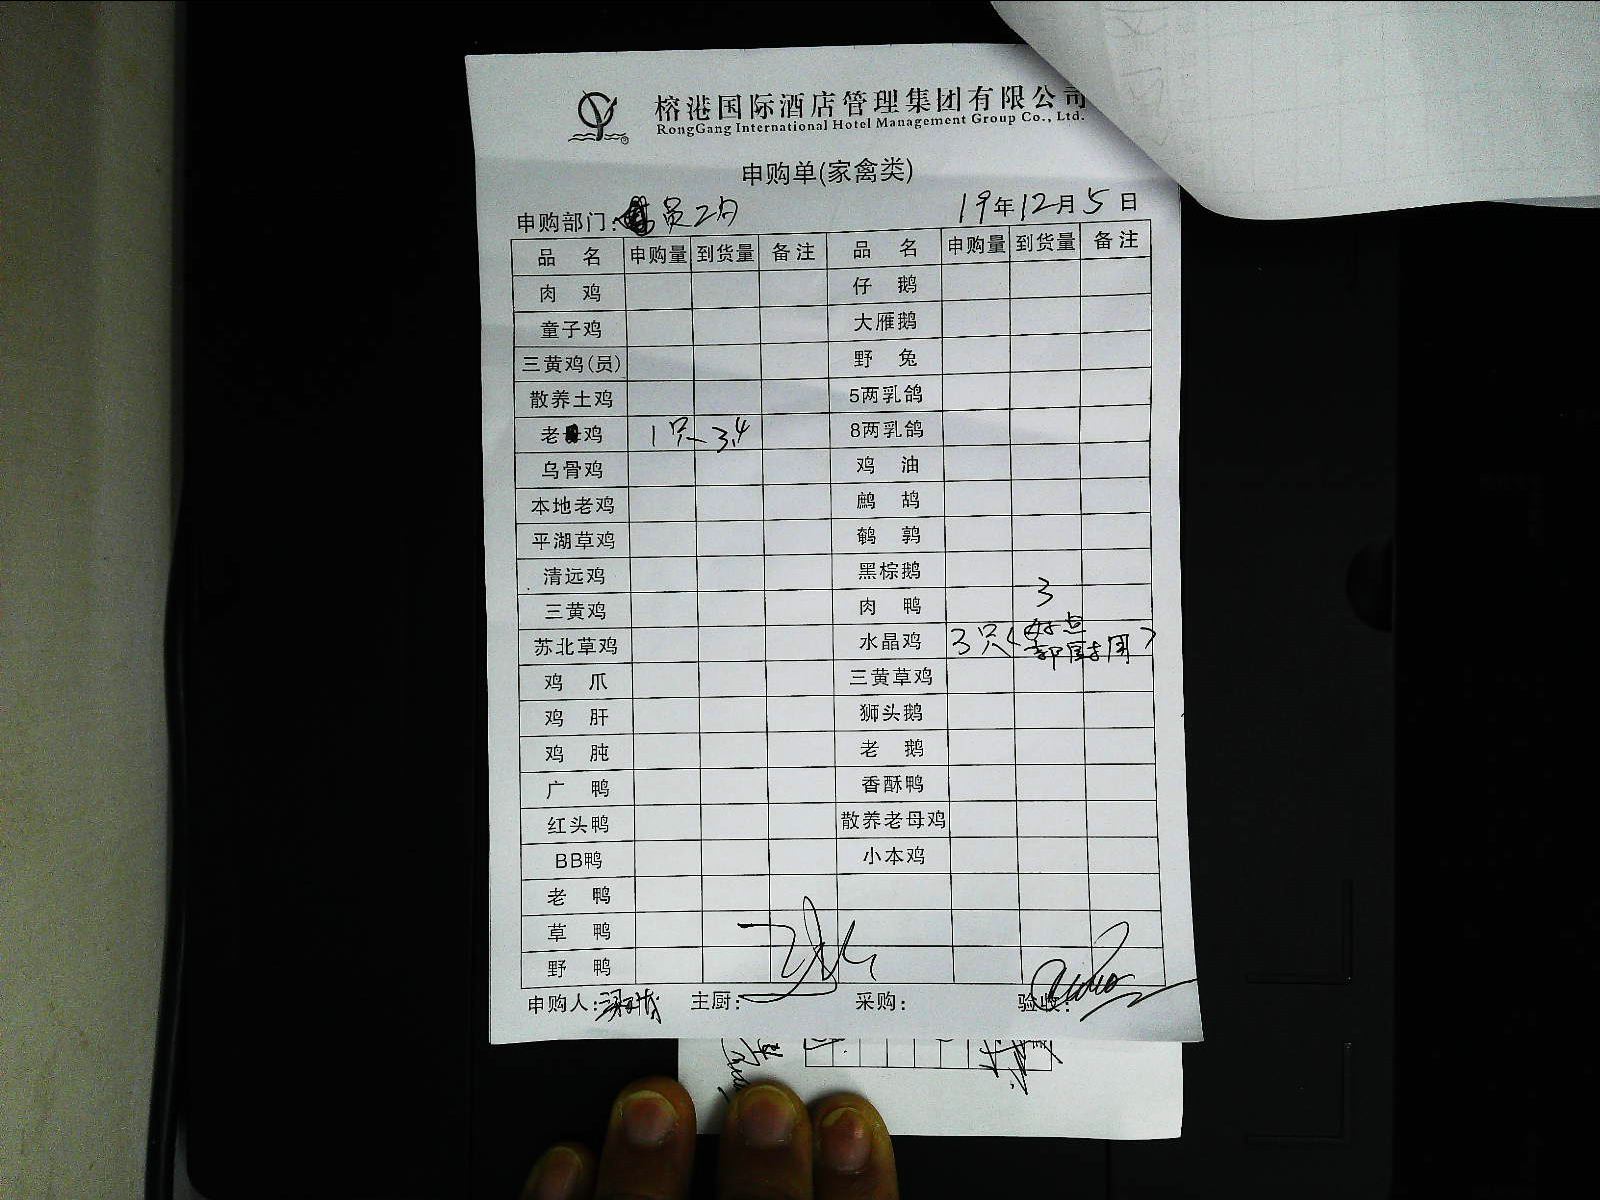 榕港国际酒店管理集团有限公司
RongGang International Hotel Management Group Co., Ltd.
申购单(家禽类)
申购部门: 员2月 19年12月5日
品名 申购量 到货量 备注 品名 申购量 到货量 备注
肉鸡 仔鹅
童子鸡 大雁鹅
三黄鸡(员) 野兔
散养土鸡 5两乳鸽
老母鸡 1只 3.4 8两乳鸽
乌骨鸡 鸡油
本地老鸡 鹧鸪
平湖草鸡 鹌鹑
清远鸡 黑棕鹅
三黄鸡 肉鸭 3
苏北草鸡 水晶鸡 3只(好点
用)
鸡爪 三黄草鸡
鸡肝 狮头鹅
鸡肫 老鹅
广鸭 香酥鸭
红头鸭 散养老母鸡
BB鸭 小本鸡
老鸭
草鸭
野鸭
申购人: 主厨: 采购: 验收: